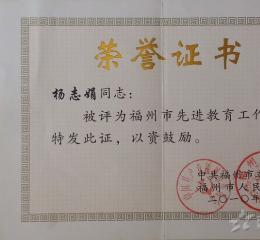 荣誉证书
杨志娟同志:
被评为福州市先进教育工作
特发此证，以资鼓励。
中共福州市
福州市人民
二〇一〇年